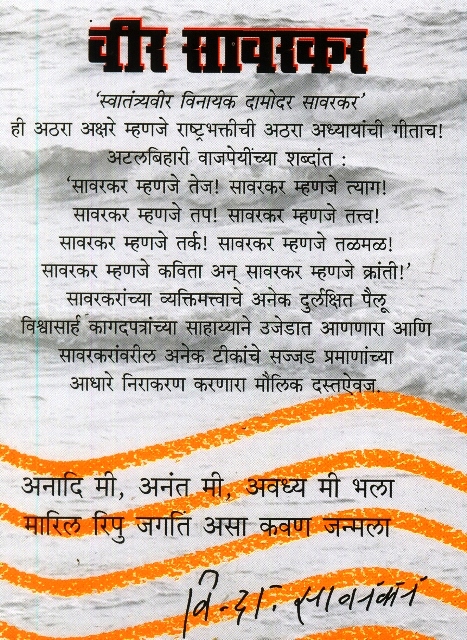 वीर सावरकर
‘स्वातंत्र्यवीर विनायक दामोदर सावरकर’
ही अठरा अक्षरे म्हणजे राष्ट्रभक्तीची अठरा अध्यायांची गीताच!
अटलबिहारी वाजपेयींच्या शब्दांत :
‘सावरकर म्हणजे तेज! सावरकर म्हणजे त्याग!
सावरकर म्हणजे तप! सावरकर म्हणजे तत्त्व!
सावरकर म्हणजे तर्क! सावरकर म्हणजे तळमळ!
सावरकर म्हणजे कविता अन् सावरकर म्हणजे क्रांती!’
सावरकरांच्या व्यक्तिमत्त्वाचे अनेक दुर्लक्षित पैलू
विश्वासार्ह कागदपत्रांच्या साहाय्याने उजेडात आणणारा आणि
सावरकरांवरील अनेक टीकांचे सज्जड प्रमाणांच्या
आधारे निराकरण करणारा मौलिक दस्तऐवज.
अनादि मी, अनंत मी, अवध्य मी भला
मारिल रिपु जगतिं असा कवण जन्मला
वि. दा. सावरकर